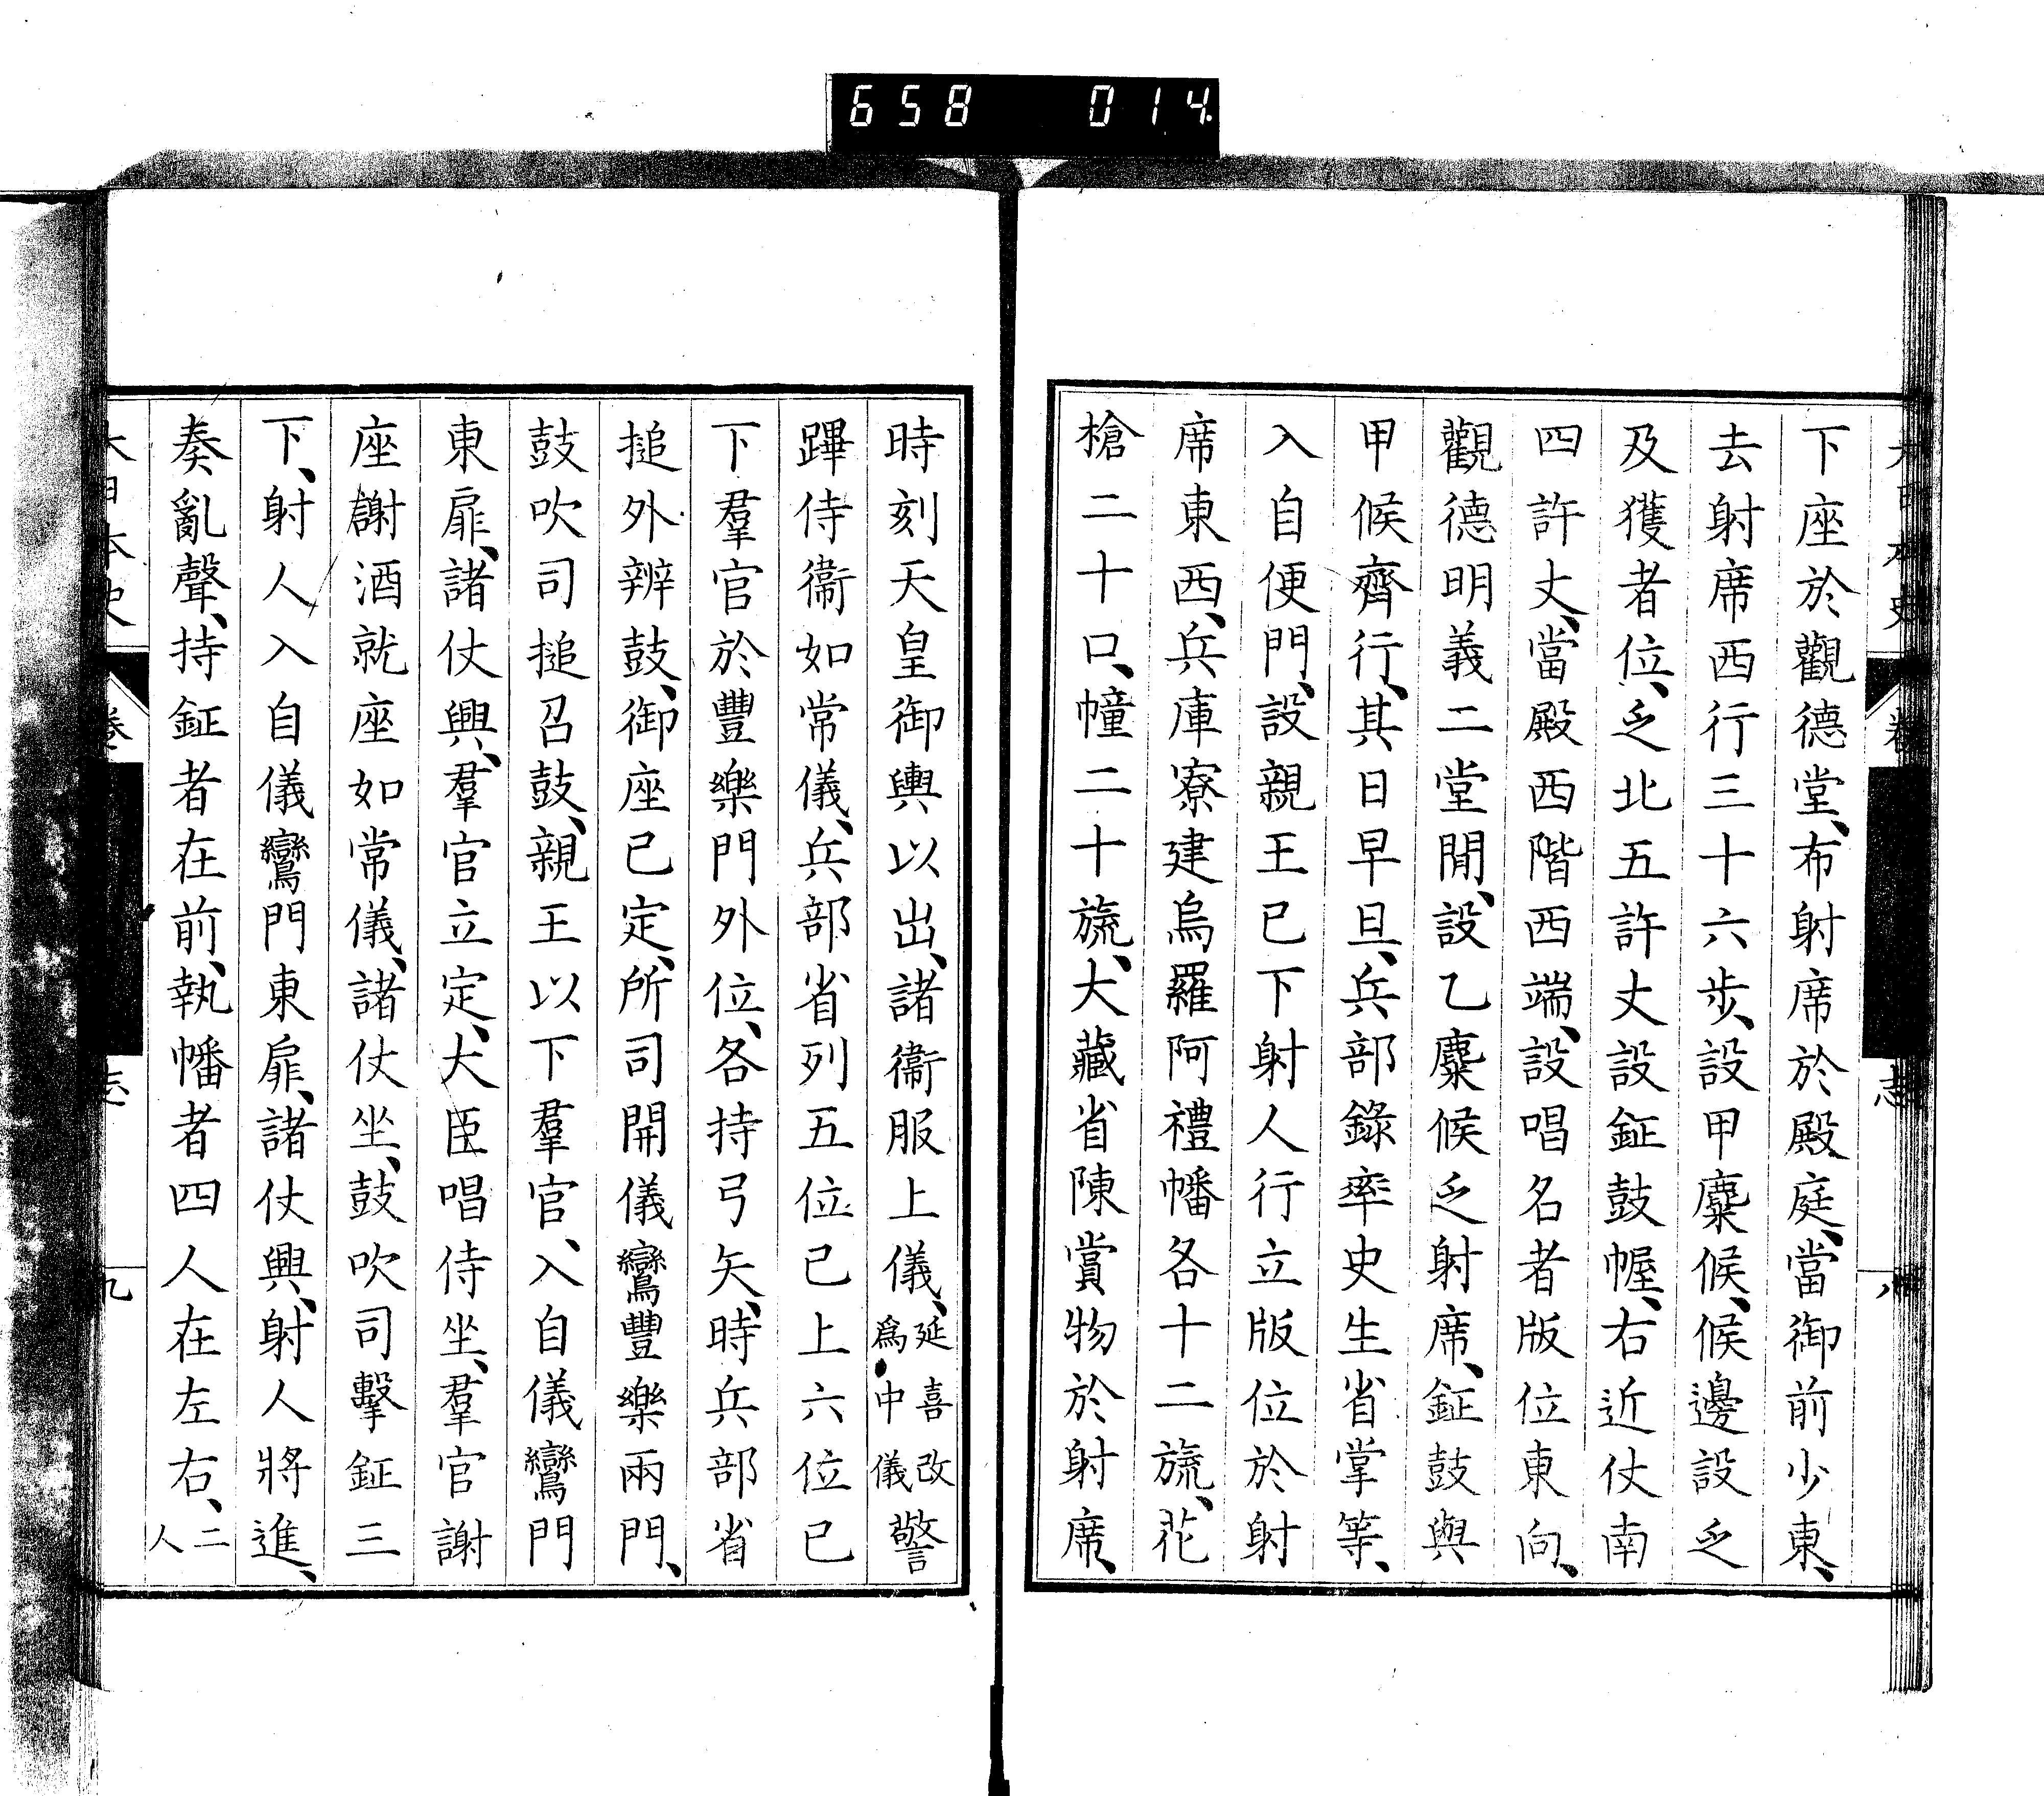 658 014
大日本史 卷 志 八
下座於觀德堂、布射席於殿庭、當御前少東、
去射席西行三十六步、設甲麋候、候邊設乏
及獲者位、乏北五許丈設鉦鼓幄、右近仗南
四許丈、當殿西階西端、設唱名者版位東向、
觀德明義二堂閒、設乙麋候乏射席、鉦鼓與
甲候齊行、其日早旦、兵部錄率史生省掌等、
入自便門、設親王已下射人行立版位於射
席東西、兵庫寮建烏羅阿禮幡各十二旒、花
槍二十口、幢二十旒、大藏省陳賞物於射席、
時刻天皇御輿以出、諸衞服上儀、延喜改爲中儀警
蹕侍衞如常儀、兵部省列五位已上六位已
下羣官於豐樂門外位、各持弓矢、時兵部省
搥外辨鼓、御座已定、所司開儀鸞豐樂兩門、
鼓吹司搥召鼓、親王以下羣官、入自儀鸞門
東扉、諸仗興、羣官立定、大臣唱侍坐、羣官謝
座謝酒就座如常儀、諸仗坐、鼓吹司擊鉦三
下、射人入自儀鸞門東扉、諸仗興、射人將進、
奏亂聲、持鉦者在前、執幡者四人在左右、二人
大日本史 卷 志 九